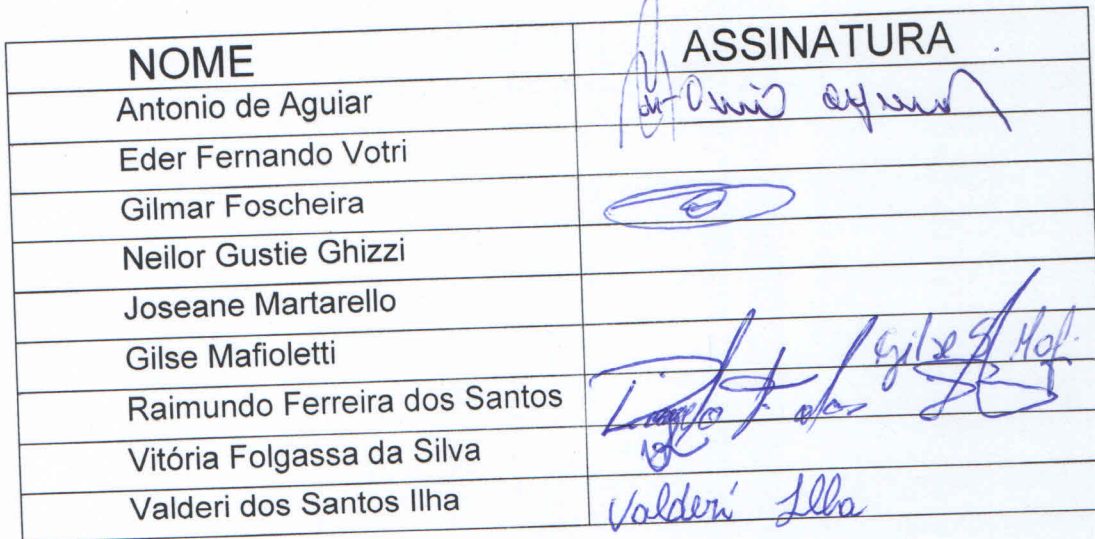 NOME ASSINATURA
Antonio de Aguiar
Eder Fernando Votri
Gilmar Foscheira
Neilor Gustie Ghizzi
Joseane Martarello
Gilse Mafioletti Gilse
Raimundo Ferreira dos Santos
Vitória Folgassa da Silva
Valderi dos Santos Ilha Valderi Ilha